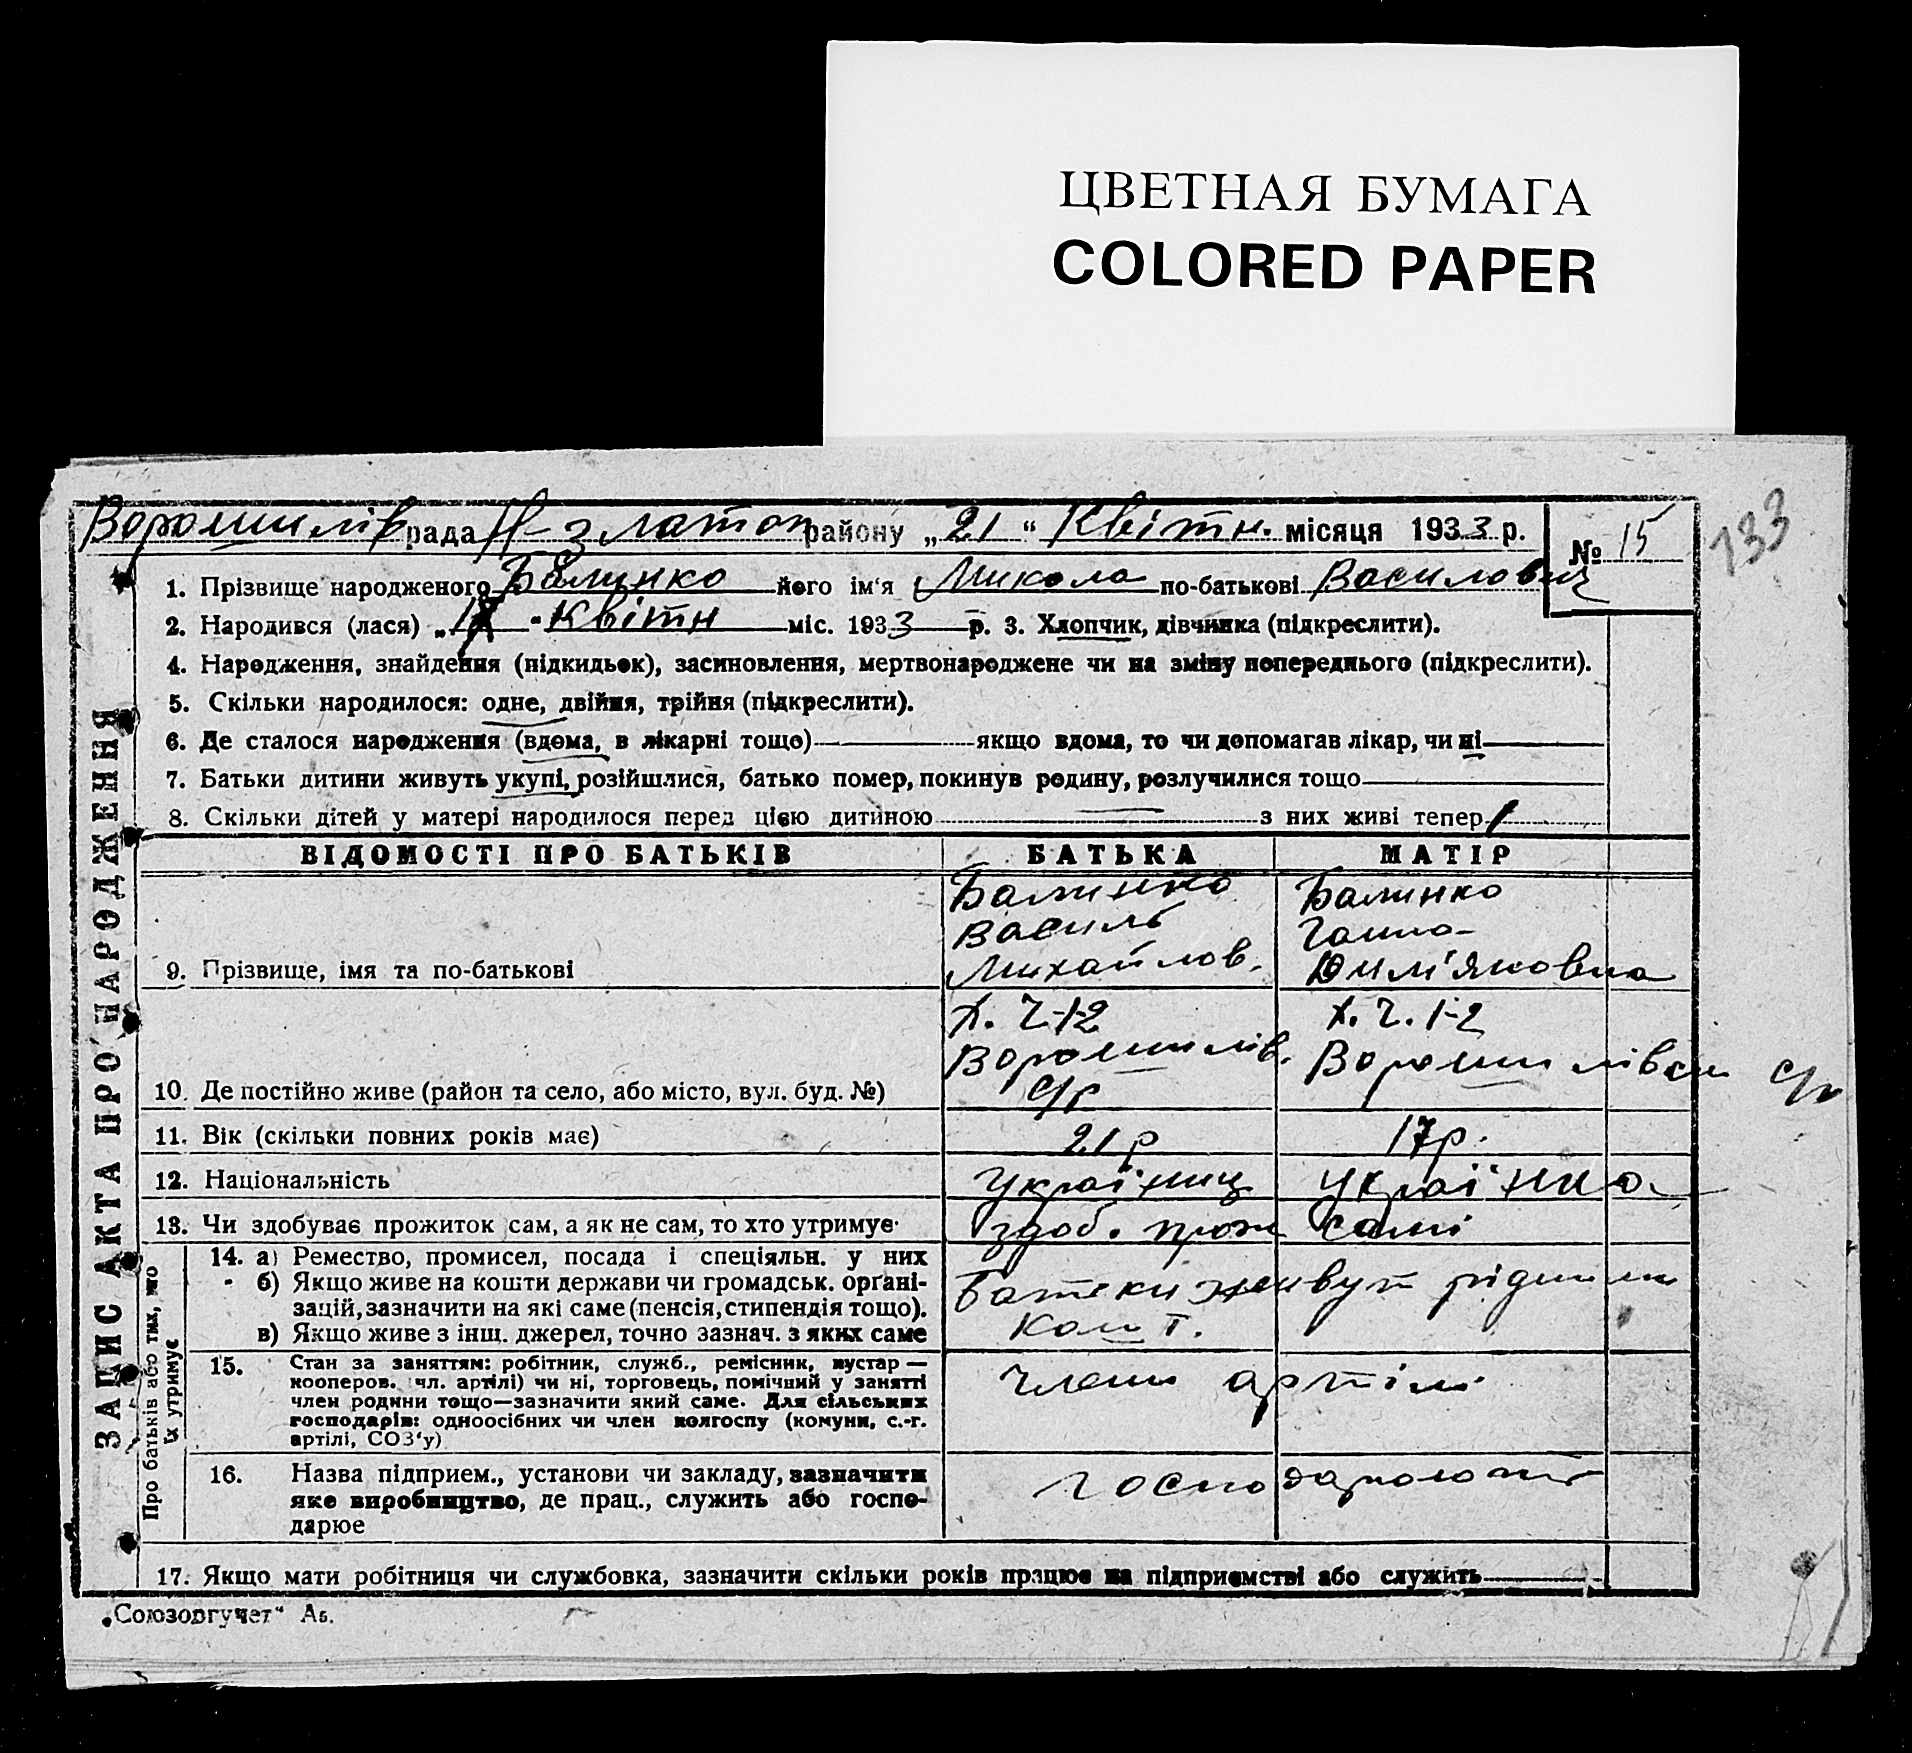 ЦВЕТНАЯ БУМАГА
COLORED PAPER
133
Ворошилів рада Н-златоп району „21“ Квітн. місяця 1933 р. № 15
1. Прізвище народженого Балинко його ім‘я Микола по-батькові Василович
2. Народився (лася) „ “ Квітн міс. 1933 р. 3. Хлопчик, дівчинка (підкреслити).
4. Народження, знайдення (підкидьок), засиновлення, мертвонароджене чи на зміну попереднього (підкреслити).
5. Скільки народилося: одне, двійня, трійня (підкреслити).
6. Де сталося народження (вдома, в лікарні тощо) якщо вдома, то чи допомагав лікар, чи ні
7. Батьки дитини живуть укупі, розійшлися, батько помер, покинув родину, розлучилися тощо
8. Скільки дітей у матері народилося перед цією дитиною — з них живі тепер 1
ЗАПИС АКТА ПРО НАРОДЖЕННЯ
ВІДОМОСТІ ПРО БАТЬКІВ БАТЬКА МАТІР
9. Прізвище, імя та по-батькові
Балинко
Василь
Михайлов.
Балинко
Ганна
10. Де постійно живе (район та село, або місто, вул. буд. №)
Х. Ч-1-2
Ворошилів.
с/р
Х. Ч. 1-2
Ворошилівськ с/р
11. Вік (скільки повних років має) 21 р 17 р.
12. Національність Україниц Українка
13. Чи здобуває прожиток сам, а як не сам, то хто утримує здоб. прож самі
Про батьків або тих, що
їх утримує
14. а) Ремество, промисел, посада і спеціяльн. у них
б) Якщо живе на кошти держави чи громадськ. органі-
зацій, зазначити на які саме (пенсія, стипендія тощо).
в) Якщо живе з інш. джерел, точно зазнач. з яких саме
Батьки живут
Кошт.
15. Стан за заняттям: робітник, служб., ремісник, кустар —
кооперов. чл. артілі) чи ні, торговець, помічний у занятті
член родини тощо—зазначити який саме. Для сільських
господарів: одноосібних чи член колгоспу (комуни, с.-г.
артілі, СОЗ‘у)
Члени артілі
16. Назва підприєм., установи чи закладу, зазначити
яке виробництво, де прац., служить або госпо-
дарює
17. Якщо мати робітниця чи службовка, зазначити скільки років працює на підприємстві або служить
„Союзоргучет“ Аб.